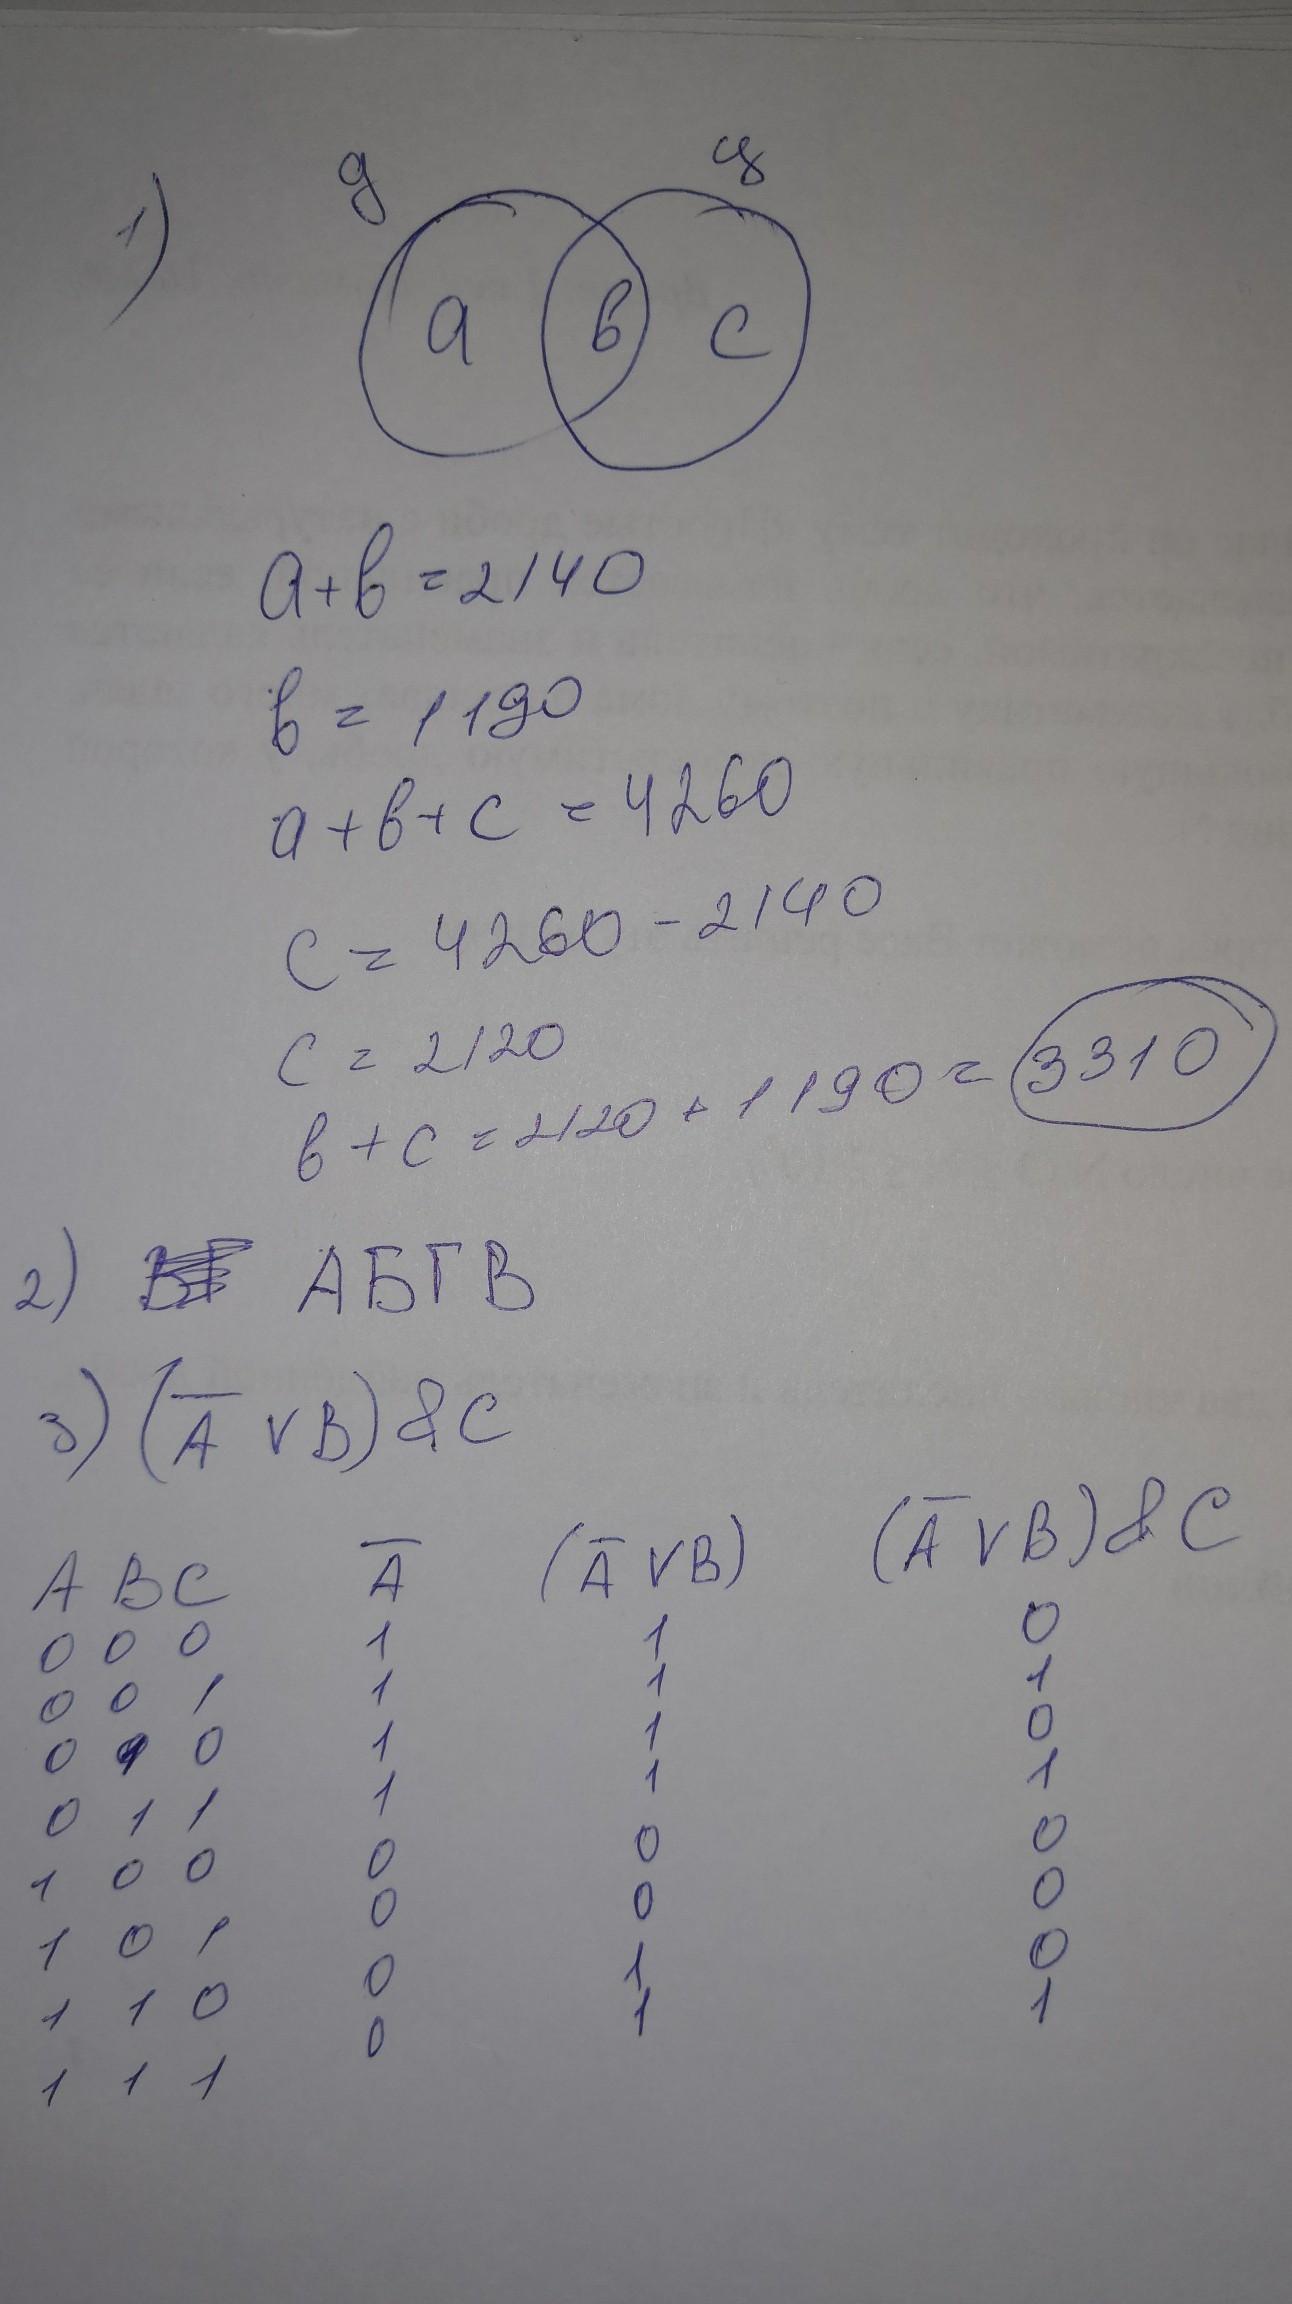 1)
д ц
а в с
а+в=2140
в = 1190
а+в+с = 4260
с = 4260 - 2140
с = 2120
в+с = 2120 + 1190 = 3310
2) АБГВ
3) (A̅ v B) & C
A B C A̅ (A̅ v B) (A̅ v B) & C
0 0 0 1 1 0
0 0 1 1 1 1
0 1 0 1 1 0
0 1 1 1 1 1
1 0 0 0 0 0
1 0 1 0 0 0
1 1 0 0 1 0
1 1 1 0 1 1